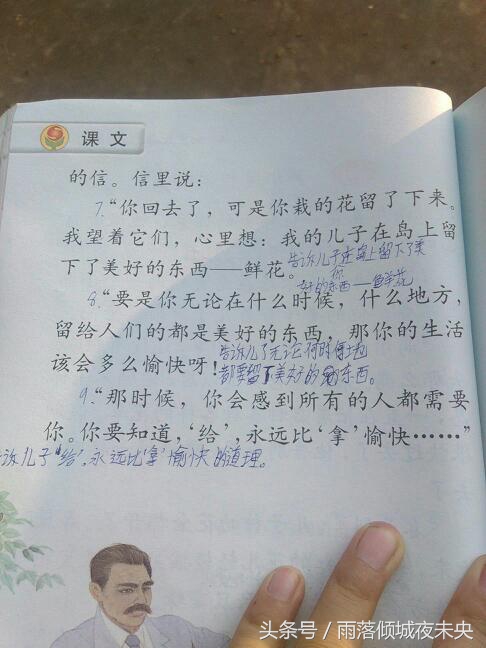 课文
的信。信里说：
7.“你回去了，可是你栽的花留了下来。
我望着它们，心里想：我的儿子在岛上留
下了美好的东西——鲜花。
告诉儿子在岛上留下了美
你
好的东西——鲜花
8.“要是你无论在什么时候，什么地方，
留给人们的都是美好的东西，那你的生活
该会多么愉快呀！
告诉儿子无论何时何地
都要留下美好的东西。
9.“那时候，你会感到所有的人都需要
你。你要知道，‘给’，永远比‘拿’愉快……”
诉儿子“给”，永远比‘拿’愉快的道理。
头条号 / 雨落倾城夜未央